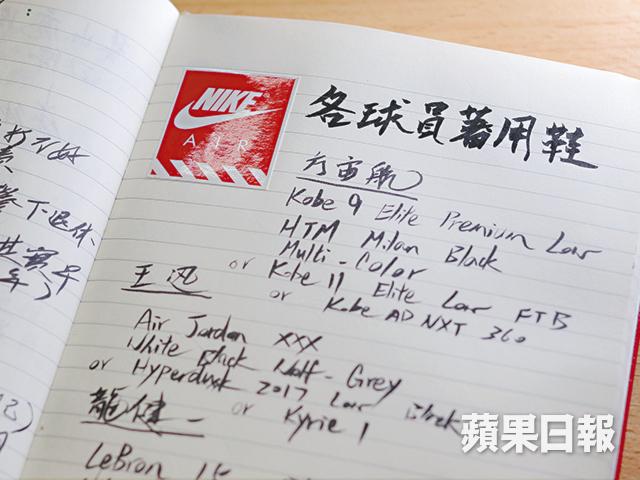 NIKE
AIR
各球員著用鞋
方宙航
Kobe 9 Elite Premium Low
HTM Milan Black
Multi-Color
or Kobe 11 Elite Low FTB
or Kobe AD NXT 360
王迅
Air Jordan XXX
White Black Wolf-Grey
or Hyperdusk 2017 Low Black
or Kyrie 1
龍健一
LeBron 15
下退休
蘋果日報